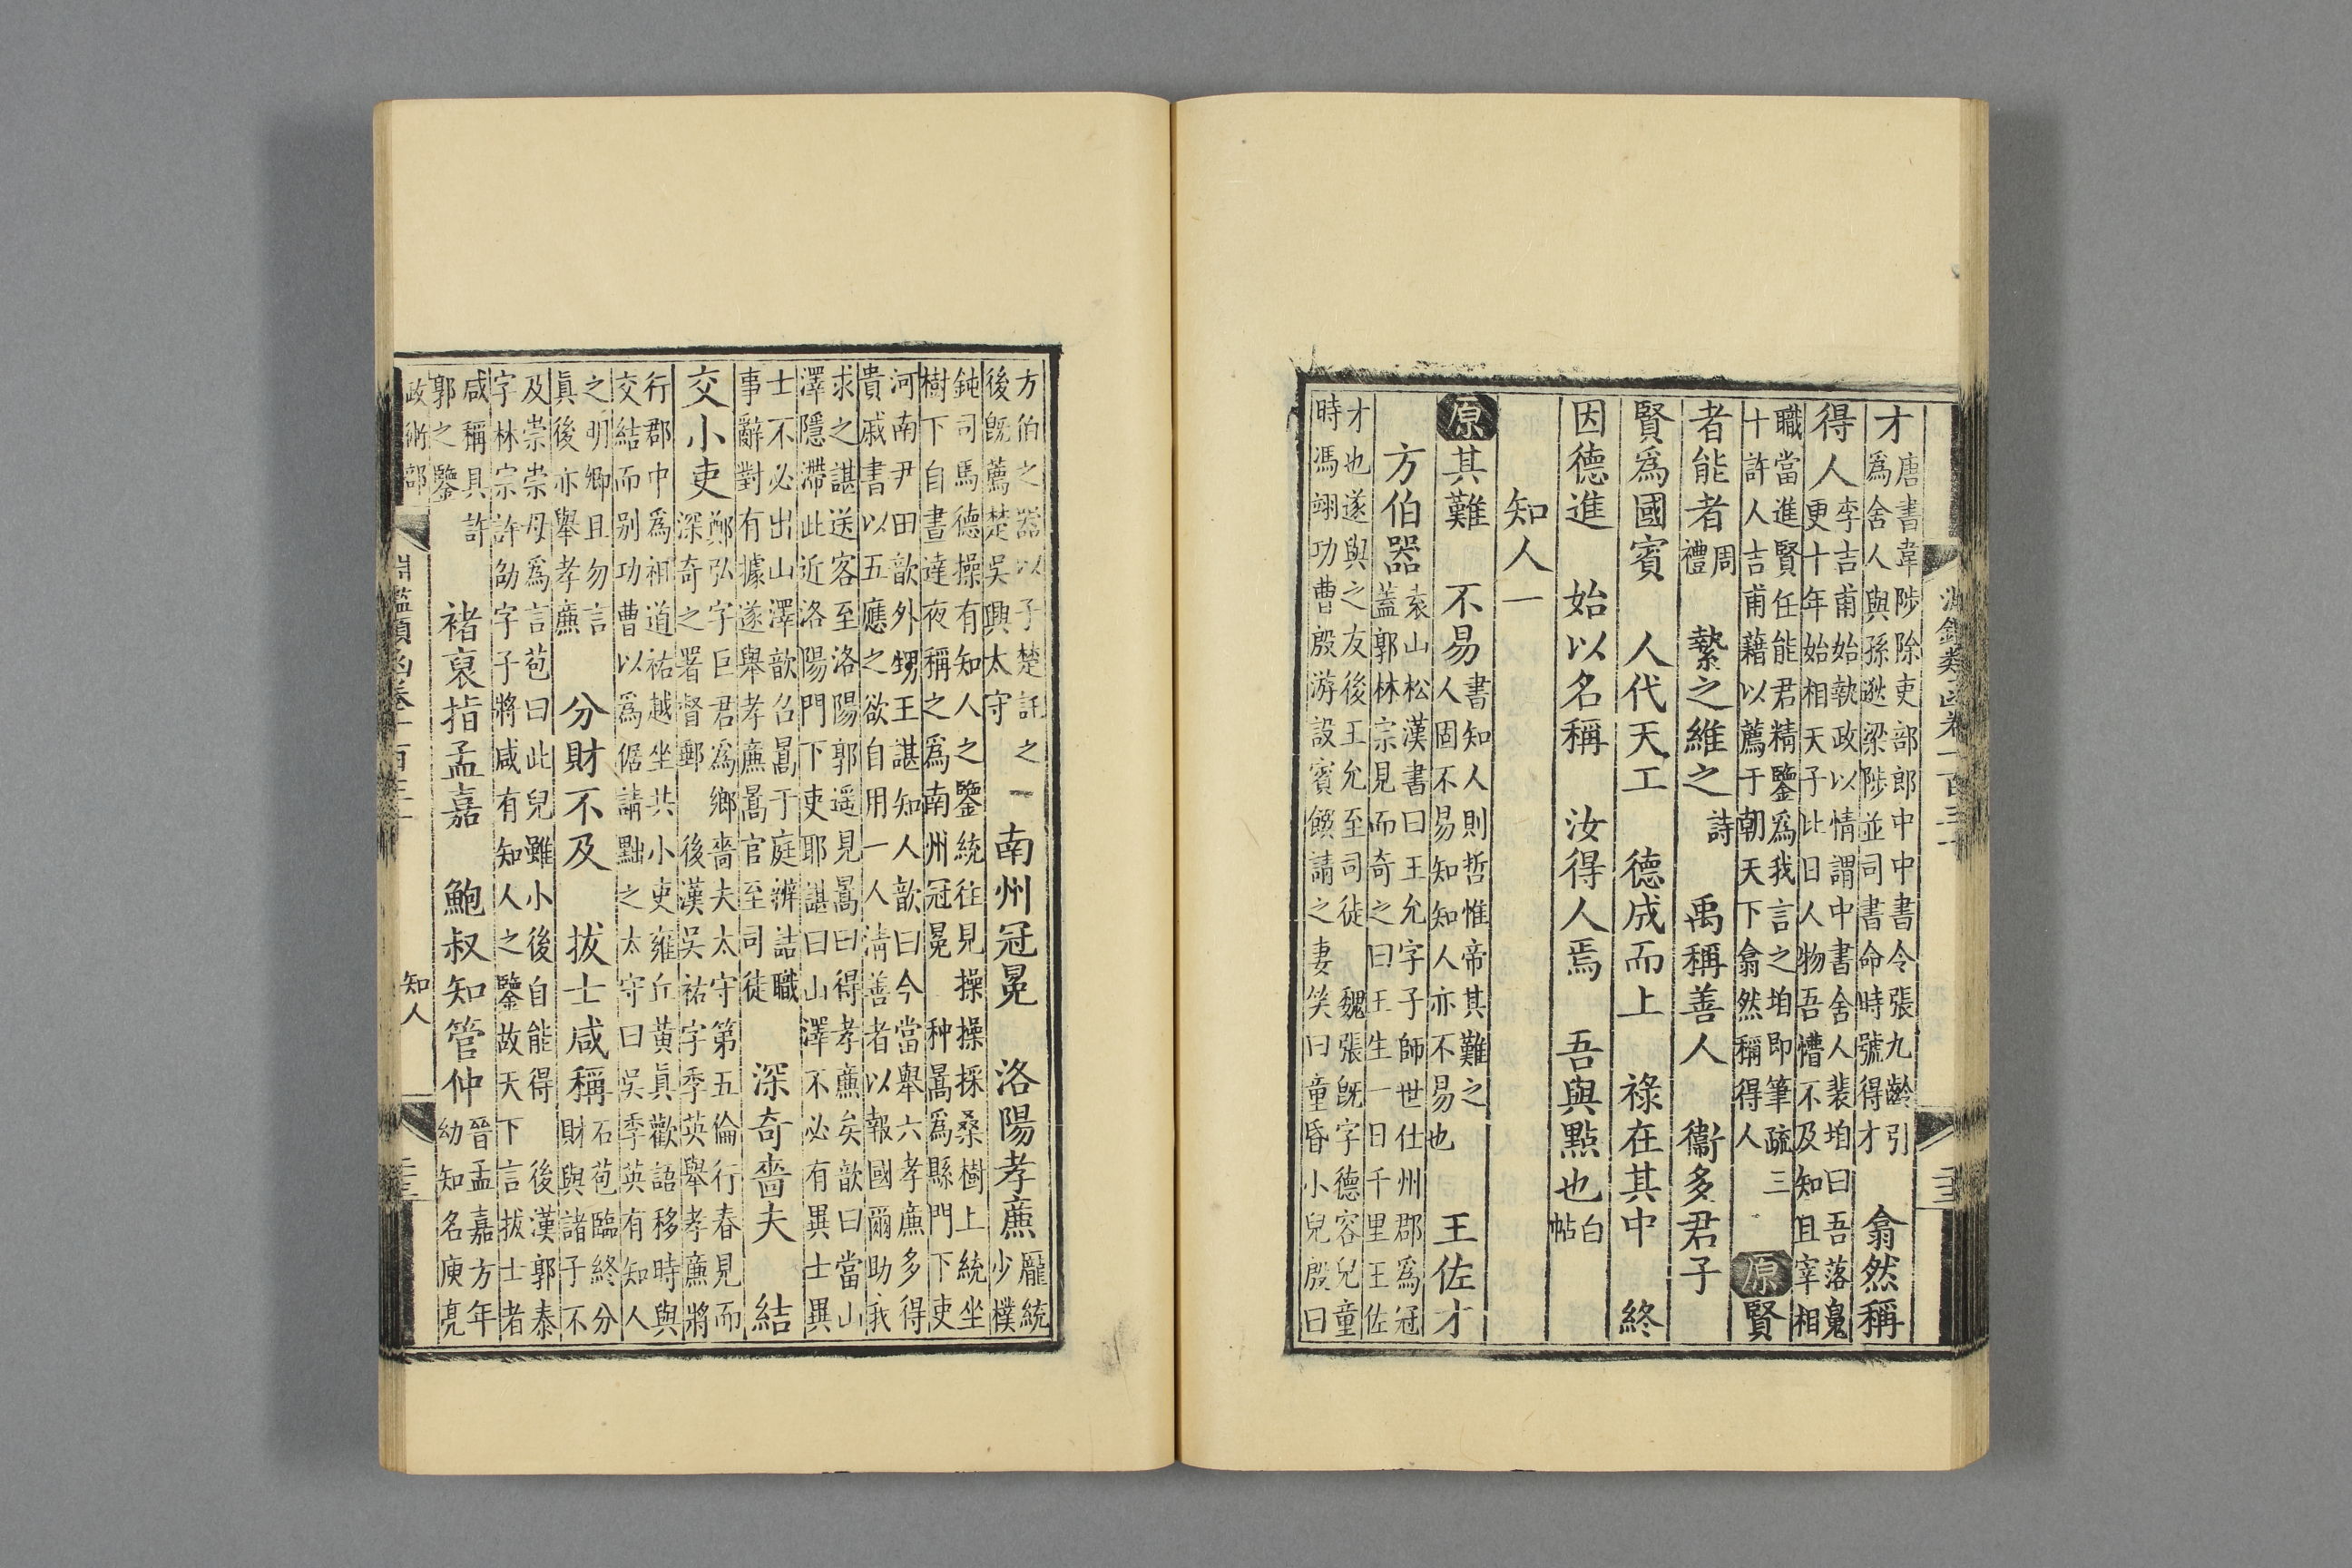 才唐書韋陟除吏部郎中中書令張九齡引爲舍人與孫逖梁陟並司書命時號得才　翕然稱
得人李吉甫始執政以情謂中書舍人裴垍曰吾落魄更十年始相天子此日人物吾懵不及知且宰相
職當進賢任能君精鑒爲我言之垍即筆疏三十許人吉甫藉以薦于朝天下翕然稱得人　原賢
者能者周禮　縶之維之詩　禹稱善人　衞多君子
賢爲國賓　人代天工　德成而上　祿在其中　終
因德進　始以名稱　汝得人焉　吾與點也白帖
知人一
原其難　不易書知人則哲惟帝其難之人固不易知知人亦不易也　王佐才
方伯器袁山松漢書曰王允字子師世仕州郡爲冠蓋郭林宗見而奇之曰王生一日千里王佐
才也遂與之友後王允至司徒　魏張旣字德容兒童時馮翊功曹殷游設賓饌請之妻笑曰童昏小兒殷曰
方伯之器以子楚託之後旣薦楚吳興太守　南州冠冕　洛陽孝廉龎統少樸
鈍司馬德操有知人之鑒統往見操操採桑樹上統坐樹下自晝達夜稱之爲南州冠冕　种暠爲縣門下吏
河南尹田歆外甥王諶知人歆曰今當舉六孝廉多得貴戚書以五應之欲自用一人清善者以報國爾助我
求之諶送客至洛陽郭遥見暠曰得孝廉矣歆曰當山澤隱滯此近洛陽門下吏耶諶曰山澤不必有異士異
士不必出山澤歆召暠于庭辨詰職事辭對有據遂舉孝廉暠官至司徒　深奇嗇夫　結
交小吏鄭弘字巨君爲鄉嗇夫太守第五倫行春見而深奇之署督郵　後漢吳祐字季英舉孝廉將
行郡中爲祖道祐越坐共小吏雍丘黃眞歡語移時與交結而别功曹以爲倨請黜之太守曰吳季英有知人
之明卿且勿言眞後亦舉孝廉　分財不及　拔士咸稱石苞臨終分財與諸子不
及崇崇母爲言苞曰此兒雖小後自能得　後漢郭泰字林宗許劭字子將咸有知人之鑒故天下言拔士者
咸稱具許郭之鑒　褚裒指孟嘉　鮑叔知管仲晉孟嘉方年幼知名庾亮
政術部　知人